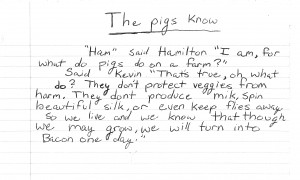 The pigs know
"Ham" said Hamilton "I am, for
what do pigs do on a farm?"
Said Kevin "That's true, oh, what
do? They don't protect veggies from
harm. They dont produce milk, spin
beautiful silk, or even keep flies away
So we live and we know that though
we may grow, we will turn into
Bacon one day."